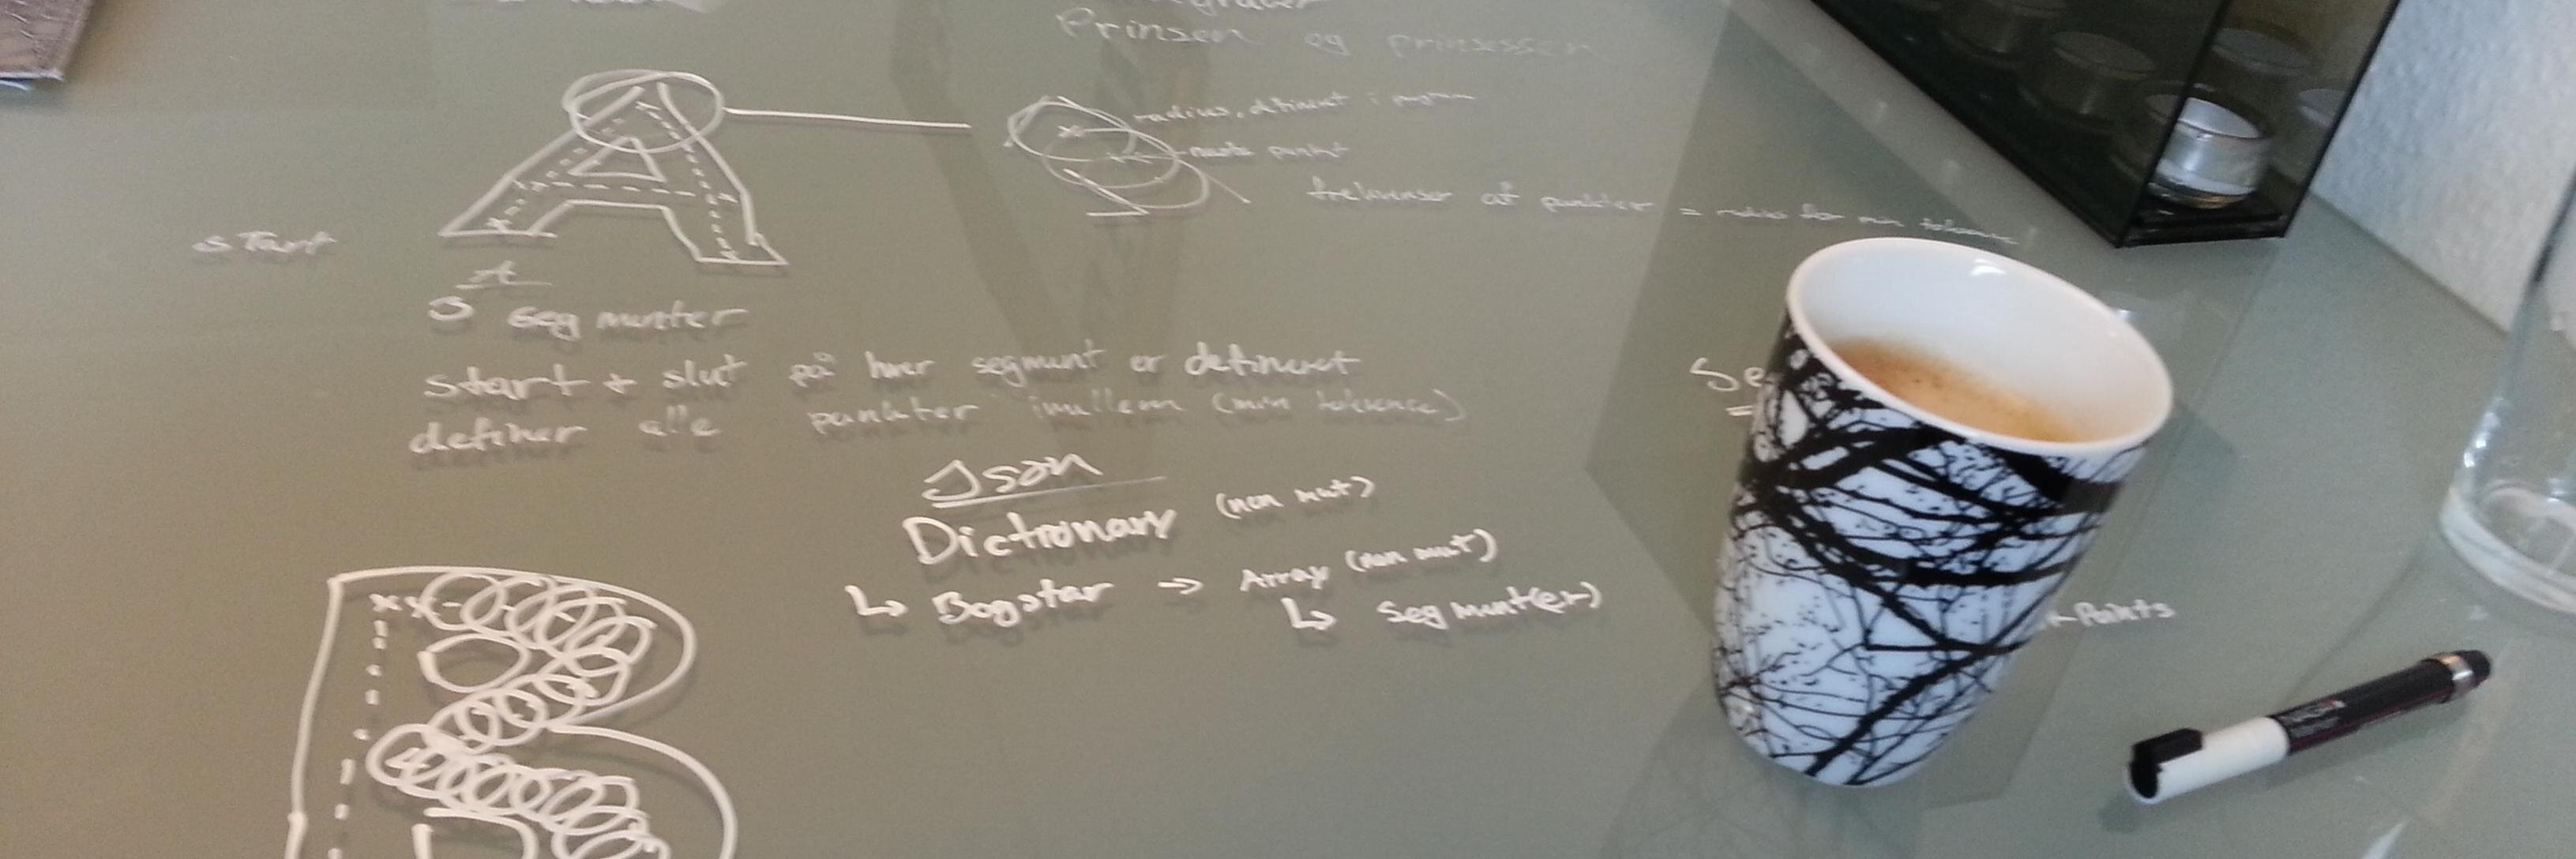 Prinsen og prinsessen
radius, defineret i program
næste punkt
frekvenser af punkter = radius for min tolerance
start
3 segmenter
start + slut på hver segment er defineret
definer alle punkter imellem (min tolerance)
Json
Dictionary (non mut)
↳ Bogstav → Array (non mut)
↳ Segment(er)
Se
Points